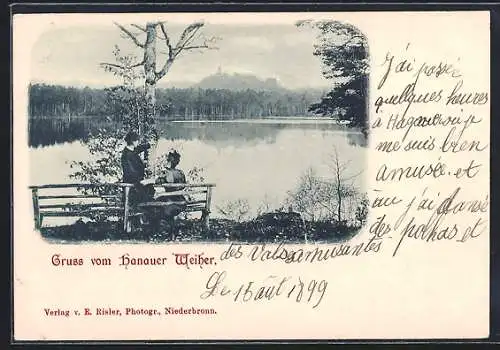 j'ai passé
quelques heures
a Haguenau je
me suis bien
amusée. et
j'ai dansé
des polkas et
des Valses amusantes
Gruss vom Hanauer Weiher.
Le 15 aût 1899
Verlag v. E. Risler, Photogr., Niederbronn.